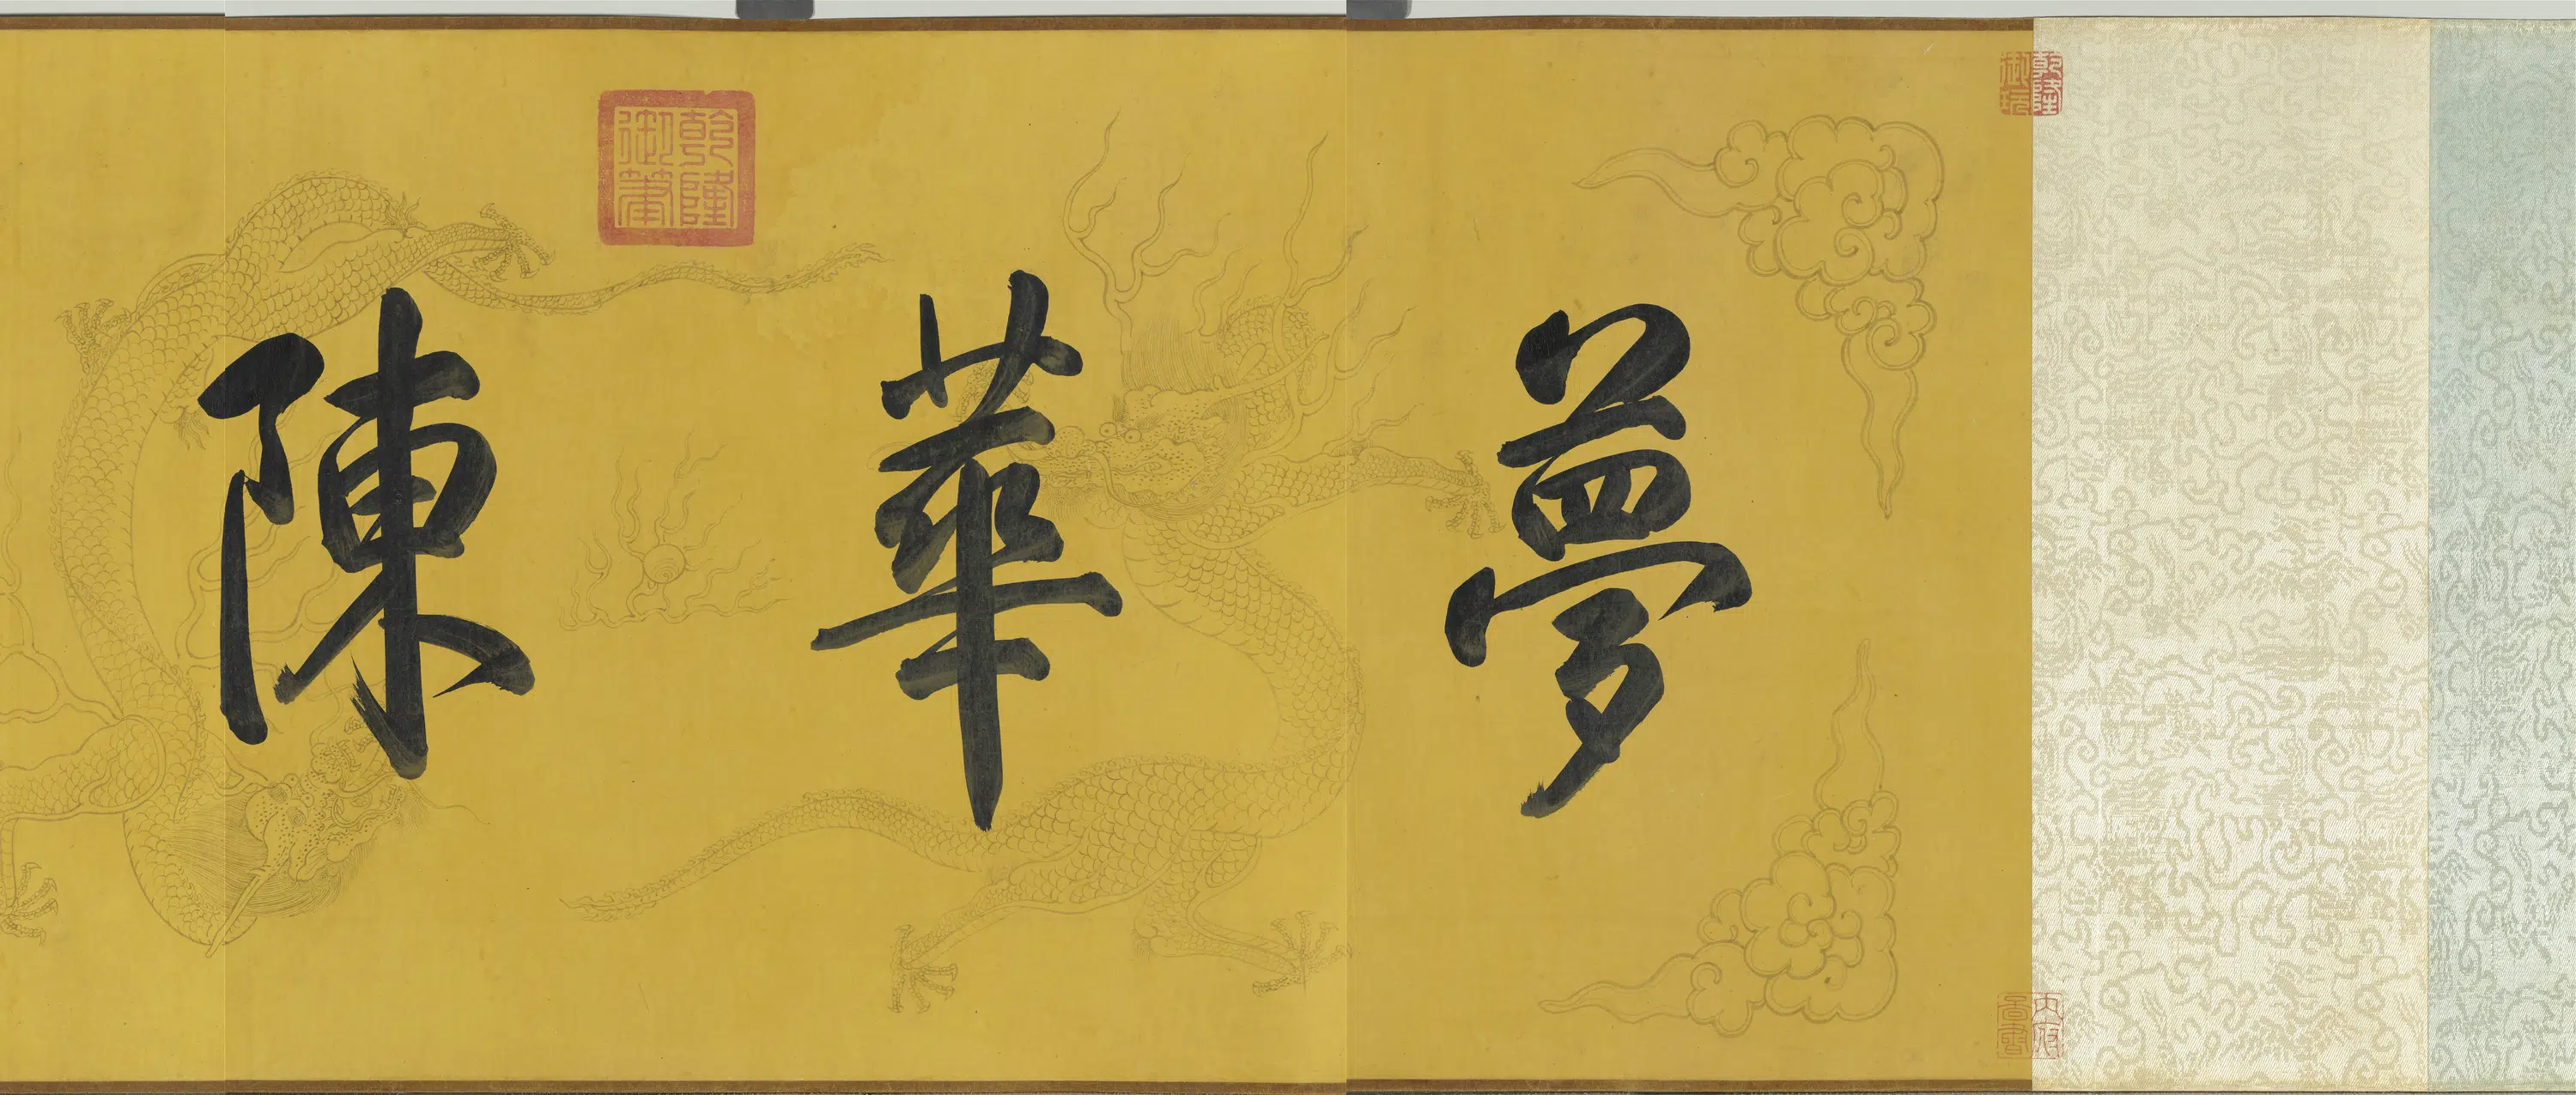 夢華陳
乾隆御筆
乾隆御玩
內府